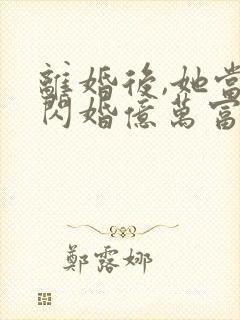 離婚後,她當
閃婚億萬富
鄭露娜